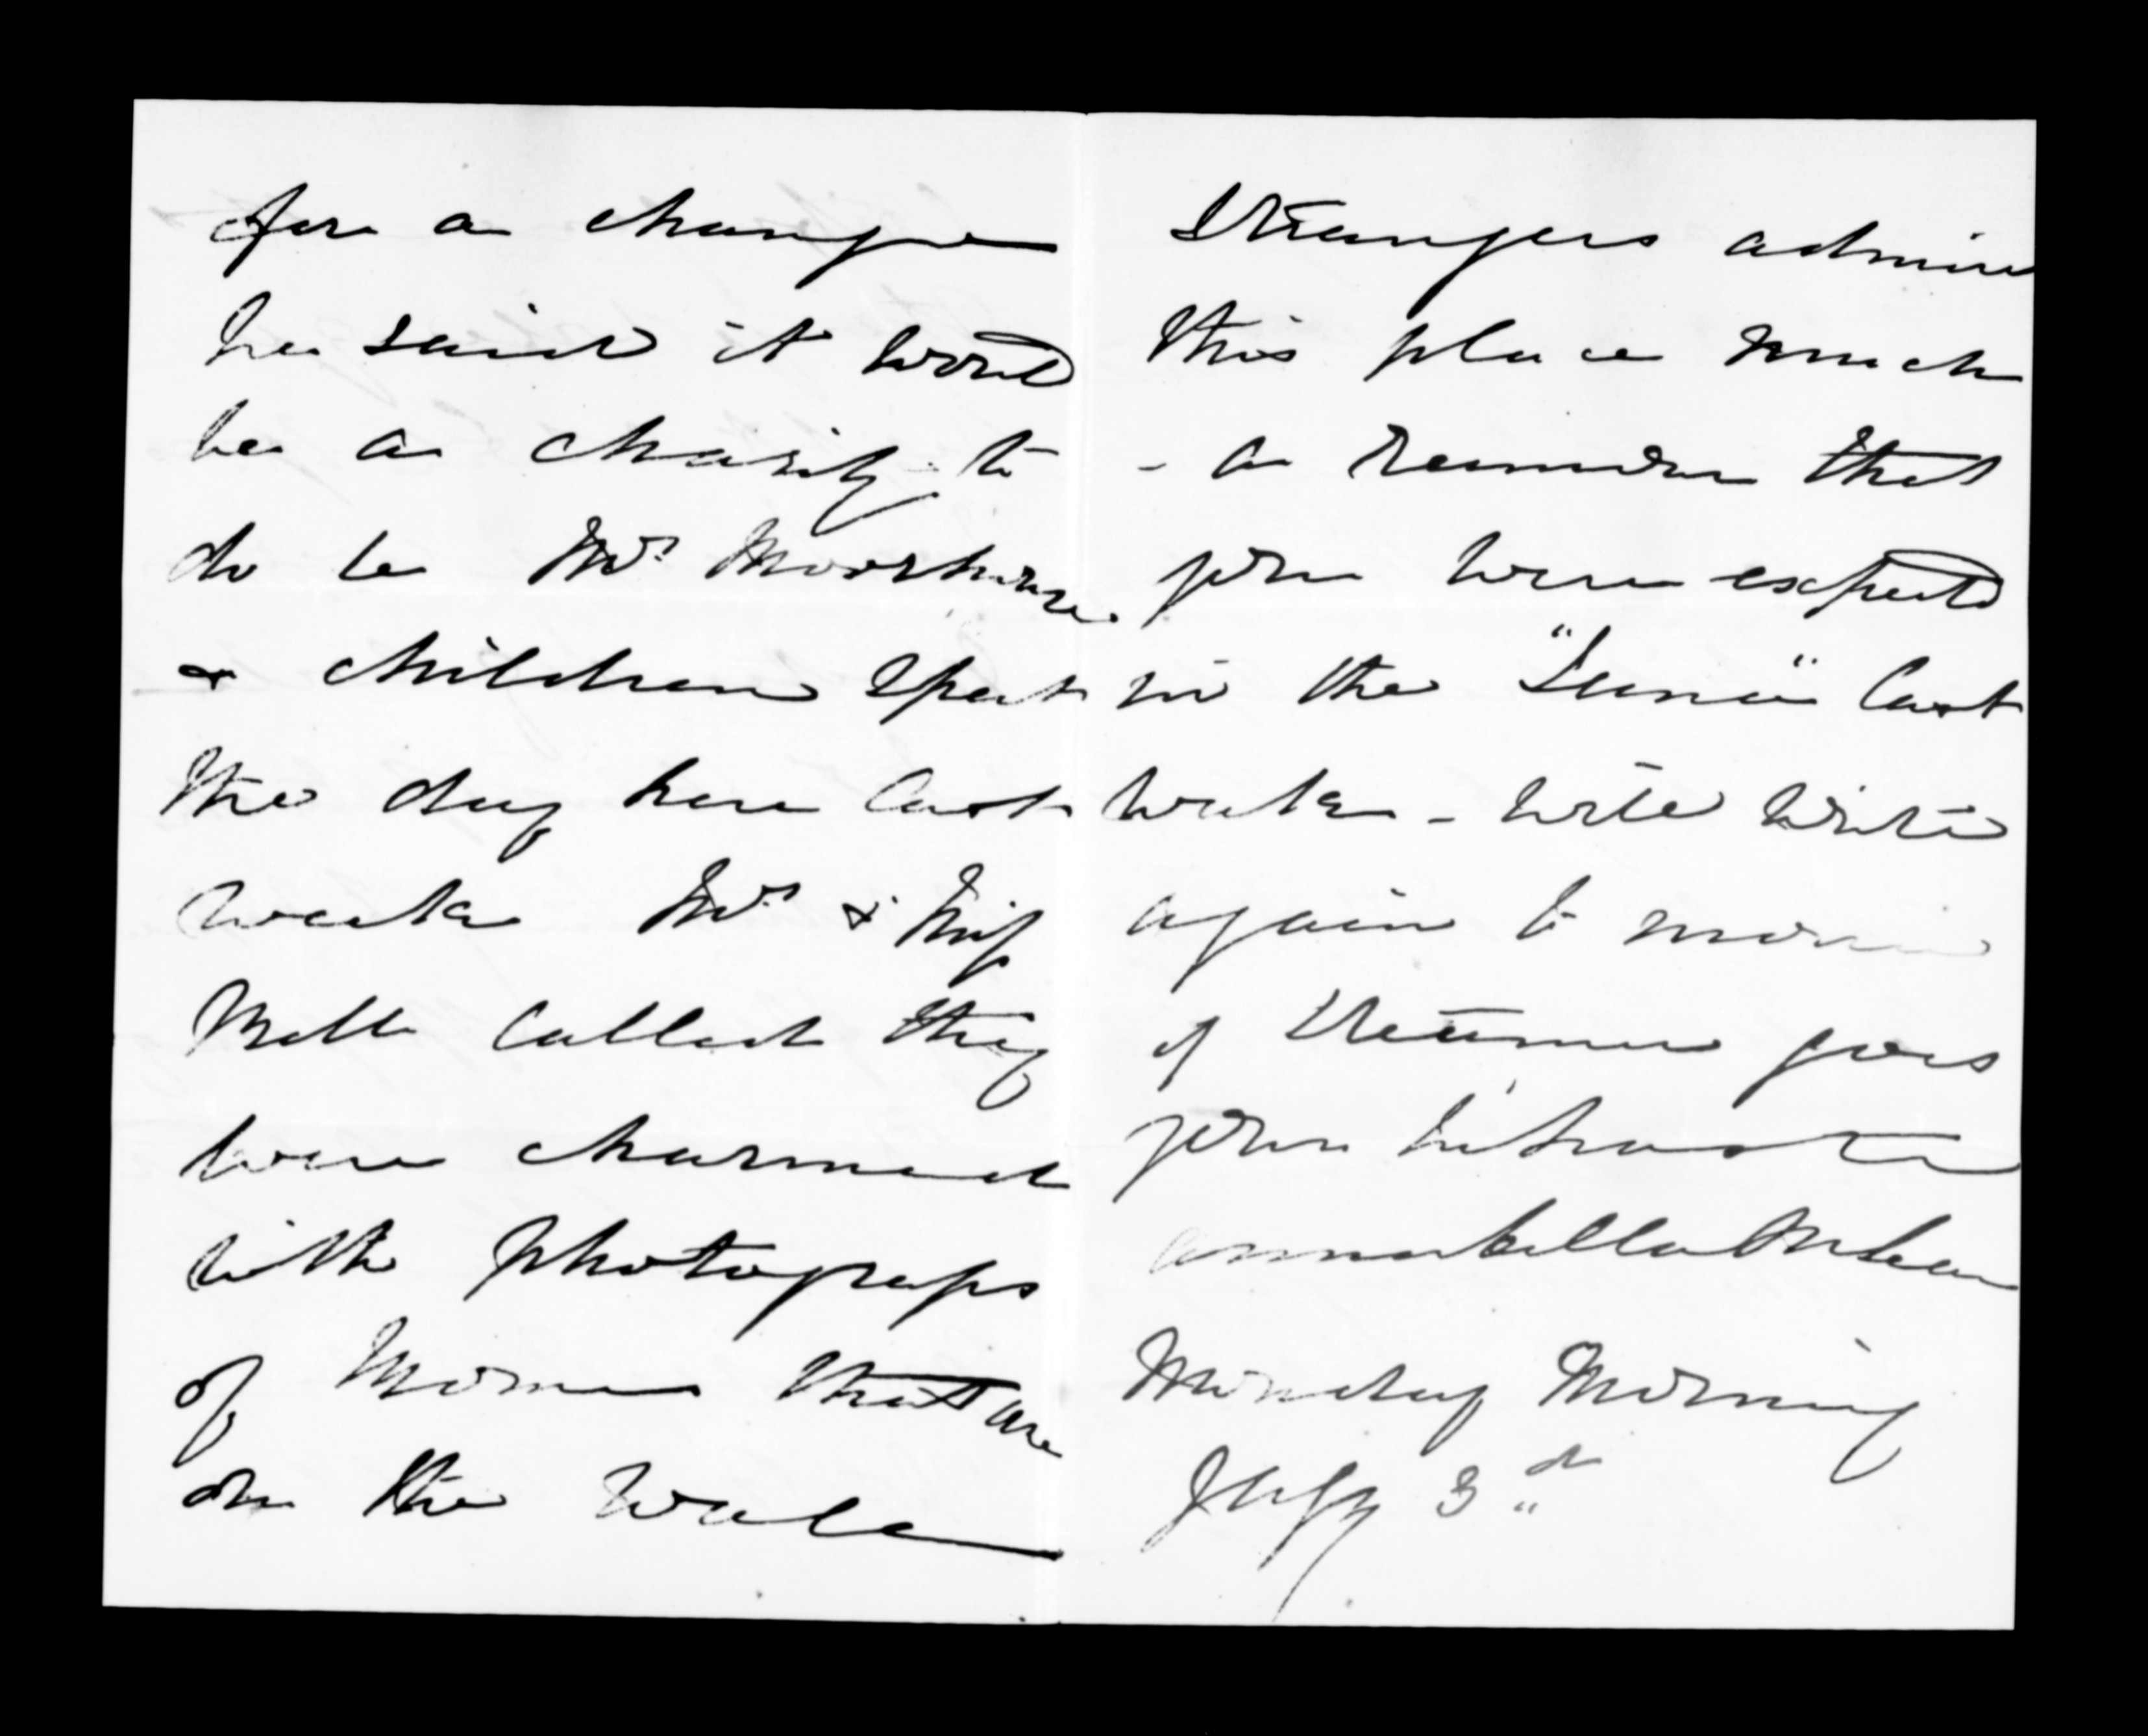 for a change
he said it would
be a charity to
do so Mrs Moorhouse
& children spent
the day here last
week Mrs & Miss
called they
were charmed
with photograps
of that are
on the walls
Strangers admire
this place much
- a rumour that
you were expected
in the "Luna" last
week - will write
again to morrow
if Steamer goes
your
Annabella McLean
Monday Morning
July 3"d